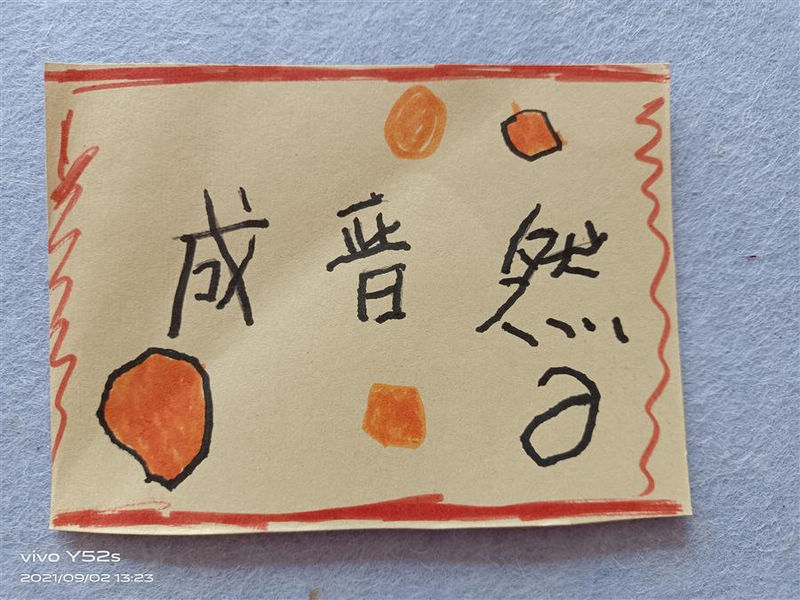 成普然
vivo Y52s
2021/09/02 13:23